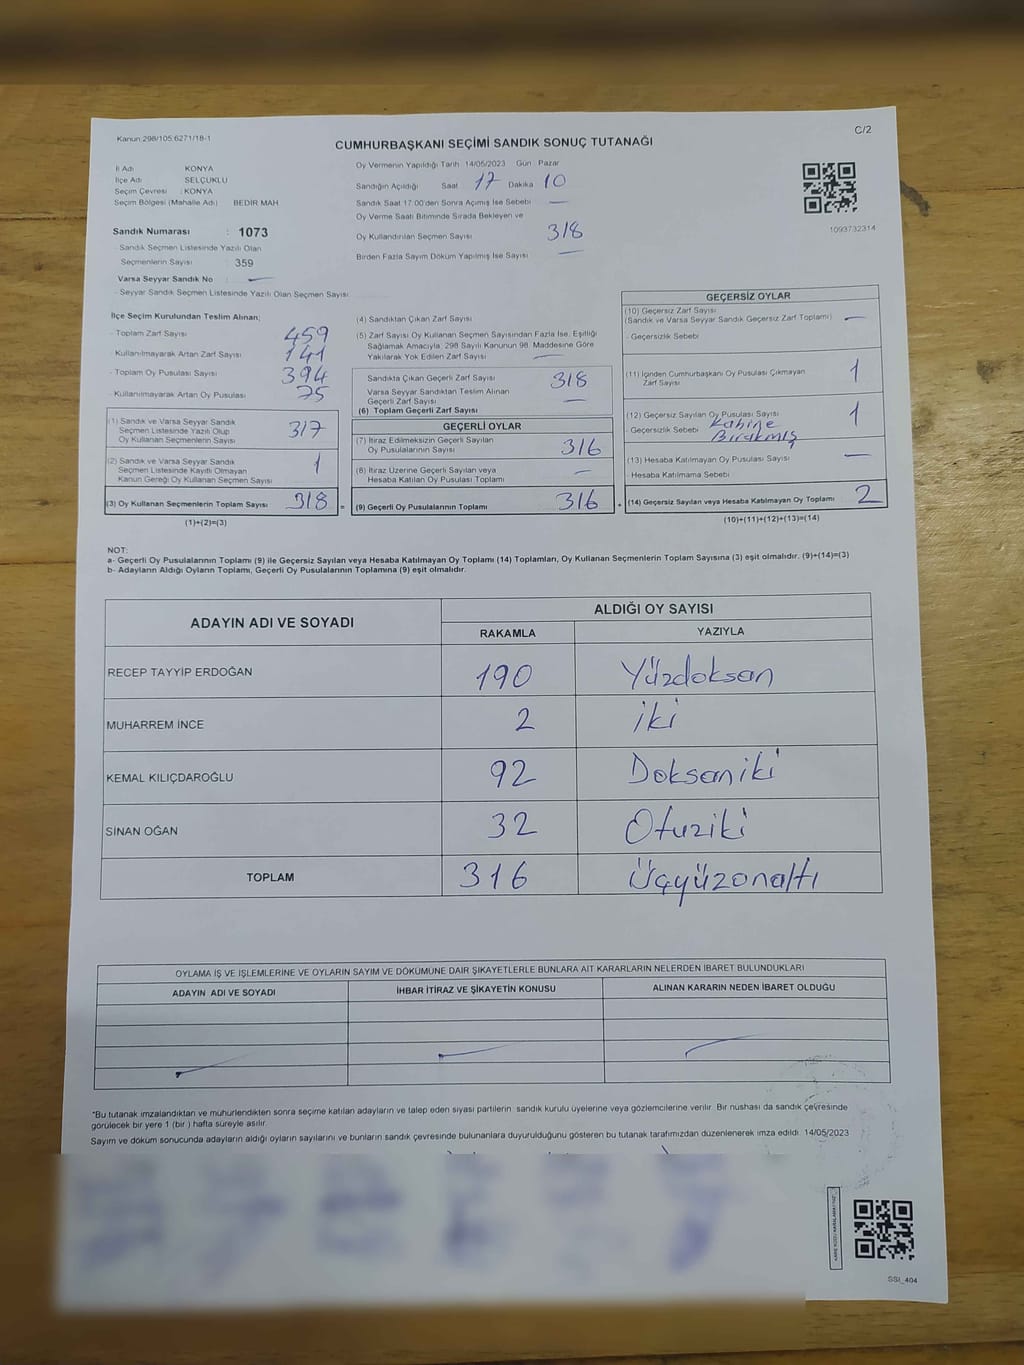 Kanun:298/105:6271/18-1
C/2
CUMHURBAŞKANI SEÇİMİ SANDIK SONUÇ TUTANAĞI
İl Adı KONYA
İlçe Adı SELÇUKLU
Seçim Çevresi : KONYA
Seçim Bölgesi (Mahalle Adı) BEDİR MAH
Sandık Numarası : 1073
Sandık Seçmen Listesinde Yazılı Olan
Seçmenlerin Sayısı : 359
Varsa Seyyar Sandık No : —
Seyyar Sandık Seçmen Listesinde Yazılı Olan Seçmen Sayısı
Oy Vermenin Yapıldığı Tarih 14/05/2023 Gün : Pazar
Sandığın Açıldığı Saat 17 Dakika 10
Sandık Saat 17:00'den Sonra Açımış İse Sebebi —
Oy Verme Saati Bitiminde Sırada Bekleyen ve
Oy Kullandırılan Seçmen Sayısı 318
Birden Fazla Sayım Döküm Yapılmış İse Sayısı —
1093732314
İlçe Seçim Kurulundan Teslim Alınan;
Toplam Zarf Sayısı 459
Kullanılmayarak Artan Zarf Sayısı 141
Toplam Oy Pusulası Sayısı 394
Kullanılmayarak Artan Oy Pusulası 75
(1) Sandık ve Varsa Seyyar Sandık
Seçmen Listesinde Yazılı Olup
Oy Kullanan Seçmenlerin Sayısı 317
(2) Sandık ve Varsa Seyyar Sandık
Seçmen Listesinde Kayıtlı Olmayan
Kanun Gereği Oy Kullanan Seçmen Sayısı 1
(3) Oy Kullanan Seçmenlerin Toplam Sayısı 318 =
(1)+(2)=(3)
(4) Sandıktan Çıkan Zarf Sayısı
(5) Zarf Sayısı Oy Kullanan Seçmen Sayısından Fazla İse, Eşitliği
Sağlamak Amacıyla; 298 Sayılı Kanunun 98. Maddesine Göre
Yakılarak Yok Edilen Zarf Sayısı —
Sandıkta Çıkan Geçerli Zarf Sayısı 318
Varsa Seyyar Sandıktan Teslim Alınan
Geçerli Zarf Sayısı —
(6) Toplam Geçerli Zarf Sayısı
GEÇERLİ OYLAR
(7) İtiraz Edilmeksizin Geçerli Sayılan
Oy Pusulalarının Sayısı 316
(8) İtiraz Üzerine Geçerli Sayılan veya
Hesaba Katılan Oy Pusulası Toplamı —
(9) Geçerli Oy Pusulalarının Toplamı 316 +
GEÇERSİZ OYLAR
(10) Geçersiz Zarf Sayısı
(Sandık ve Varsa Seyyar Sandık Geçersiz Zarf Toplamı) —
- Geçersizlik Sebebi
(11) İçinden Cumhurbaşkanı Oy Pusulası Çıkmayan
Zarf Sayısı 1
(12) Geçersiz Sayılan Oy Pusulası Sayısı 1
- Geçersizlik Sebebi
Bırakmış
(13) Hesaba Katılmayan Oy Pusulası Sayısı —
Hesaba Katılmama Sebebi
(14) Geçersiz Sayılan veya Hesaba Katılmayan Oy Toplamı 2
(10)+(11)+(12)+(13)=(14)
NOT:
a- Geçerli Oy Pusulalarının Toplamı (9) ile Geçersiz Sayılan veya Hesaba Katılmayan Oy Toplamı (14) Toplamları, Oy Kullanan Seçmenlerin Toplam Sayısına (3) eşit olmalıdır. (9)+(14)=(3)
b- Adayların Aldığı Oyların Toplamı, Geçerli Oy Pusulalarının Toplamına (9) eşit olmalıdır.
ADAYIN ADI VE SOYADI ALDIĞI OY SAYISI
RAKAMLA YAZIYLA
RECEP TAYYİP ERDOĞAN 190 Yüzdoksan
MUHARREM İNCE 2 iki
KEMAL KILIÇDAROĞLU 92 Doksaniki
SİNAN OĞAN 32 Otuziki
TOPLAM 316 Üçyüzonaltı
OYLAMA İŞ VE İŞLEMLERİNE VE OYLARIN SAYIM VE DÖKÜMÜNE DAİR ŞİKAYETLERLE BUNLARA AİT KARARLARIN NELERDEN İBARET BULUNDUKLARI
ADAYIN ADI VE SOYADI İHBAR İTİRAZ VE ŞİKAYETİN KONUSU ALINAN KARARIN NEDEN İBARET OLDUĞU
*Bu tutanak imzalandıktan ve mühürlendikten sonra seçime katılan adayların ve talep eden siyasi partilerin sandık kurulu üyelerine veya gözlemcilerine verilir. Bir nüshası da sandık çevresinde
görülecek bir yere 1 (bir ) hafta süreyle asılır.
Sayım ve döküm sonucunda adayların aldığı oyların sayılarını ve bunların sandık çevresinde bulunanlara duyurulduğunu gösteren bu tutanak tarafımızdan düzenlenerek imza edildi. 14/05/2023
SSI_404